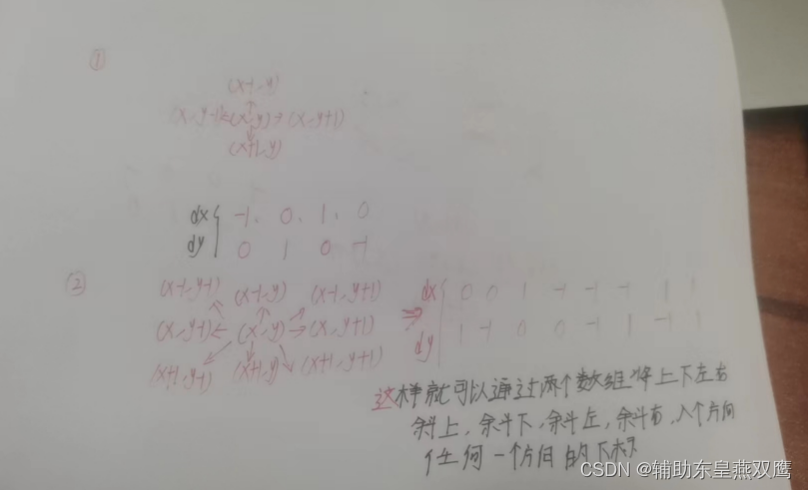 ①
(x-1,y)
(x,y-1)←(x,y)→(x,y+1)
(x+1,y)
dx { -1, 0, 1, 0
dy 0 1 0 -1
②
(x-1,y-1) (x-1,y) (x-1,y+1)
(x,y-1)←(x,y)→(x,y+1)
(x+1,y-1) (x+1,y) (x+1,y+1)
⇒
dx { 0 0 1 -1 -1 -1 1 1
dy 1 -1 0 0 -1 1 -1 1
这样就可以通过两个数组将上下左右
斜上,斜下,斜左,斜右,八个方向
任何一个方向的下标
CSDN @辅助东皇燕双鹰